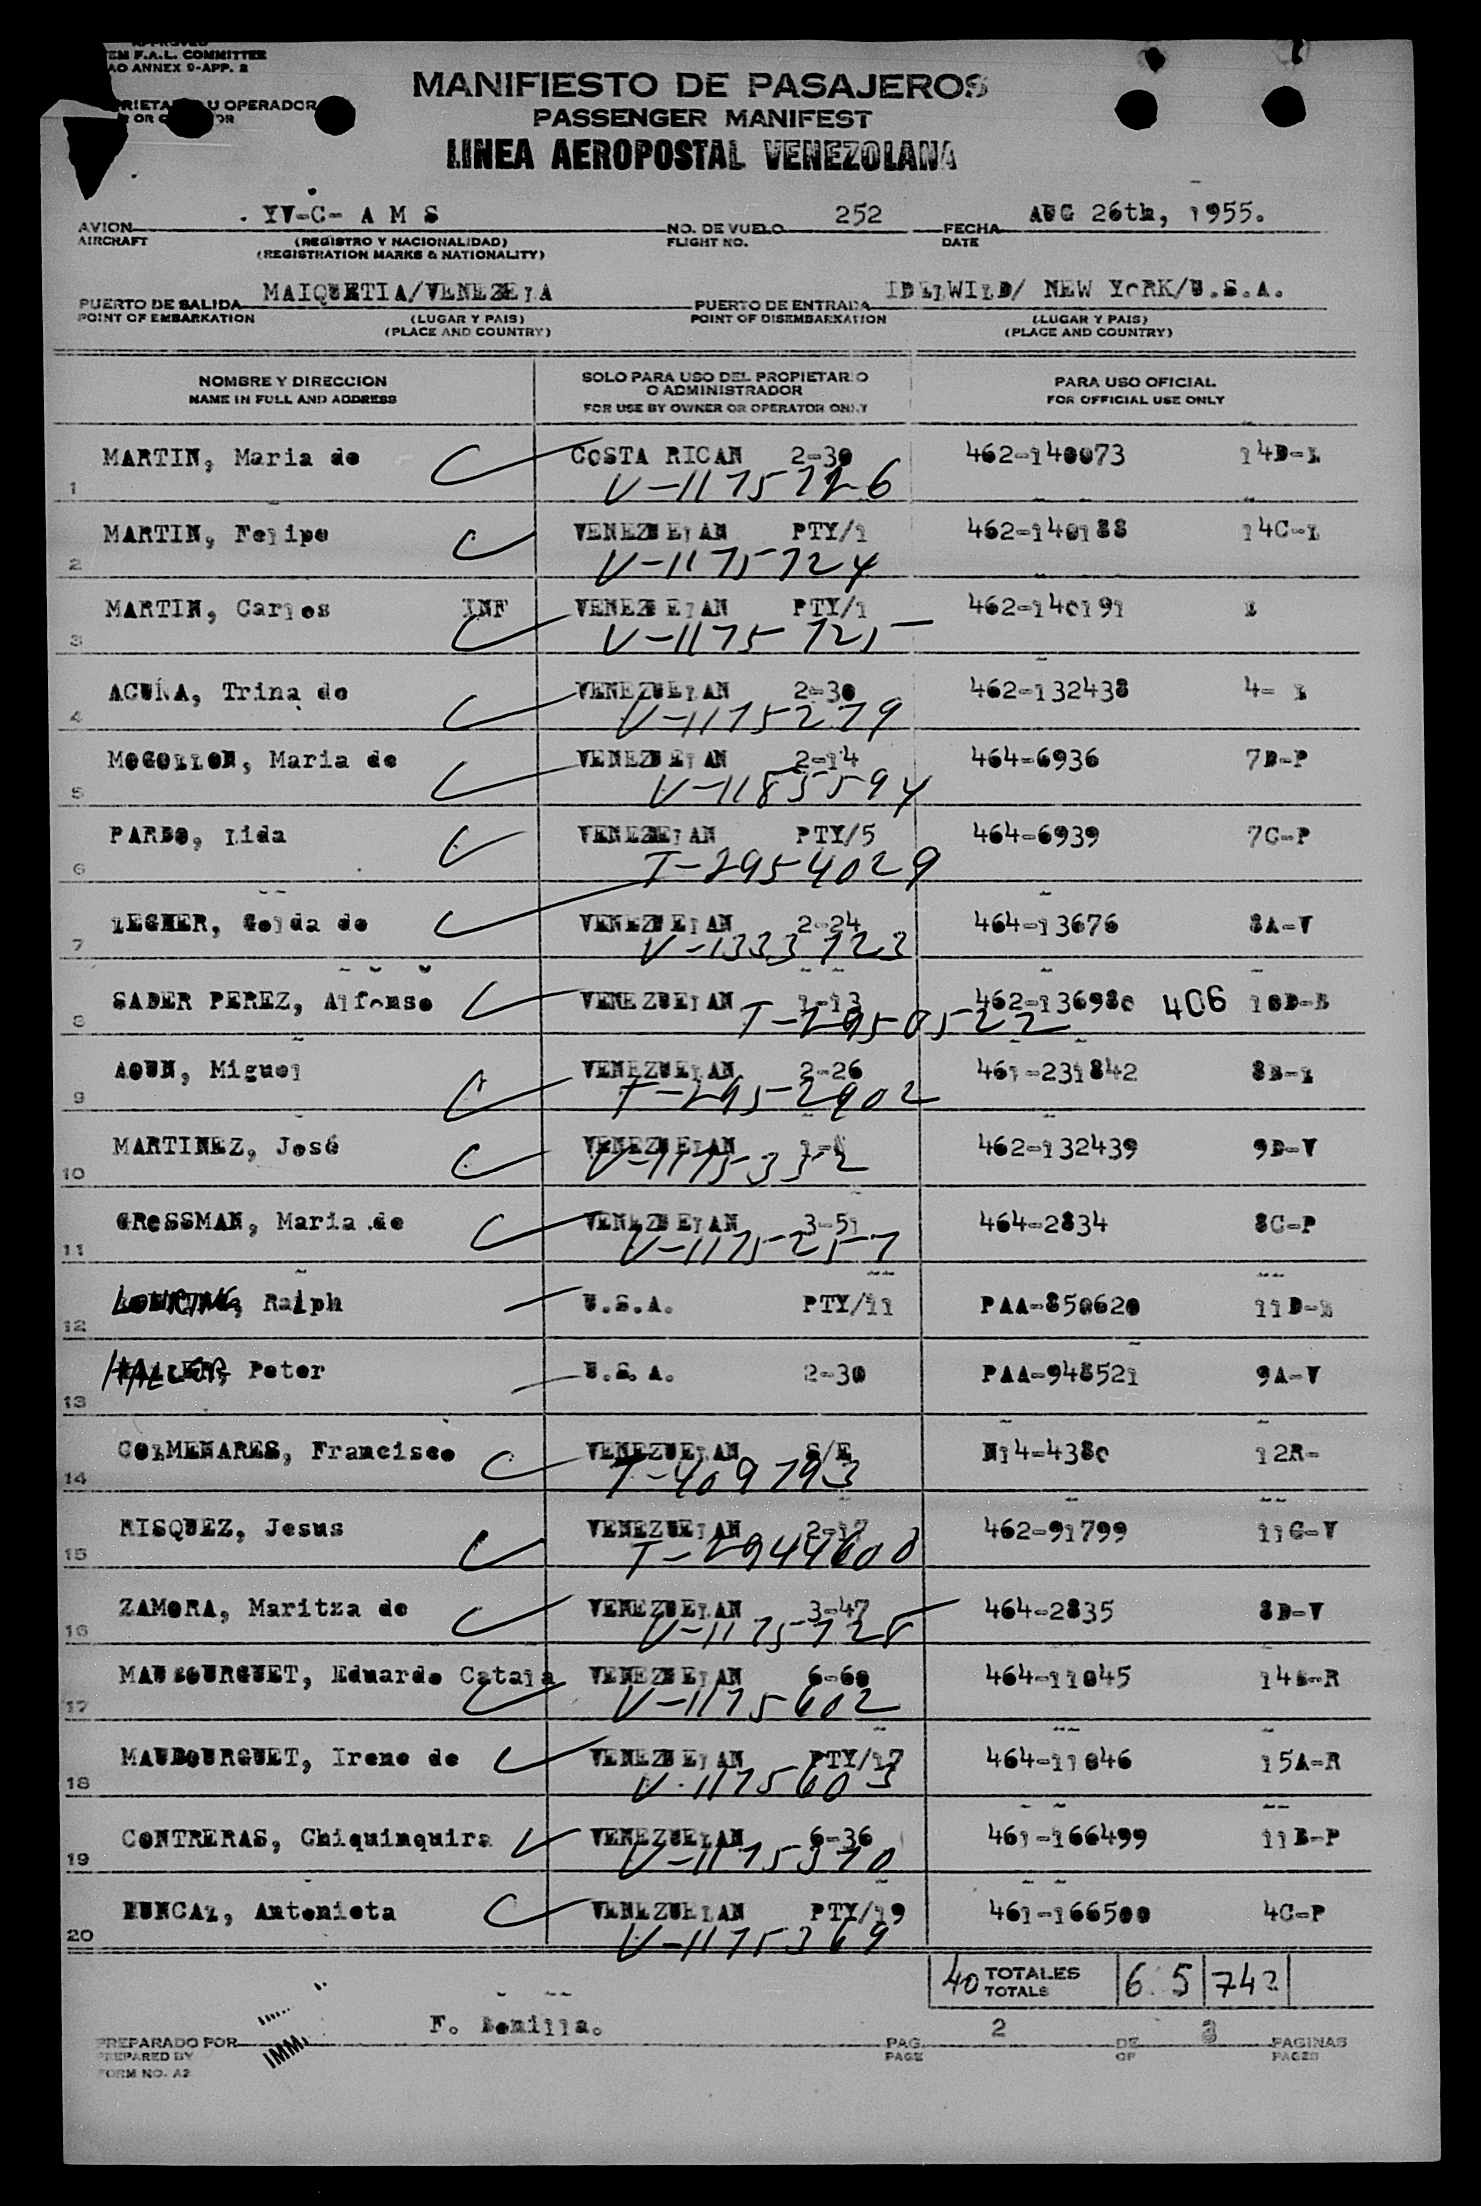 APPROVED
EM F.A.L. COMMITTEE
AO ANNEX 9-APP. 2
MANIFIESTO DE PASAJEROS
U OPERADOR
PASSENGER MANIFEST
LINEA AEROPOSTAL VENEZOLANA
AVION YV-C- A M S NO. DE VUELO 252 FECHA AUG 26th, 1955.
AIRCRAFT (REGISTRO Y NACIONALIDAD) FLIGHT NO. DATE
(REGISTRATION MARKS & NATIONALITY)
PUERTO DE SALIDA MAIQUETIA/VENEZEIA PUERTO DE ENTRADA IDELWILD/ NEW YORK/U.S.A.
POINT OF EMBARKATION (LUGAR Y PAIS) POINT OF DISEMBARKATION (LUGAR Y PAIS)
(PLACE AND COUNTRY) (PLACE AND COUNTRY)
NOMBRE Y DIRECCION SOLO PARA USO DEL PROPIETARIO PARA USO OFICIAL
O ADMINISTRADOR
NAME IN FULL AND ADDRESS FOR USE BY OWNER OR OPERATOR ONLY FOR OFFICIAL USE ONLY
MARTIN, Maria de COSTA RICAN 2-30 462-140073 14D-L
1 V-1175726
MARTIN, Felipe VENEZUELAN PTY/1 462-140188 14C-L
2 V-1175724
MARTIN, Carlos INF VENEZUELAN PTY/1 462-140191 L
3 V-1175725
ACUÑA, Trina de VENEZUELAN 2-30 462-132438 4- L
4 V-1175279
MOGOLLON, Maria de VENEZUELAN 2-14 464-6936 7B-P
5 V-1185594
PARDO, Lida VENEZUELAN PTY/5 464-6939 7C-P
6 T-2954029
LEGHER, Golda de VENEZUELAN 2-24 464-13676 8A-V
7 V-1333723
SADER PEREZ, Alfonso VENEZUELAN 1-13 462-136980 406 10D-B
8 T-2950522
AOUN, Miguel VENEZUELAN 2-26 461-231842 8B-L
9 T-2952902
MARTINEZ, José VENEZUELAN 462-132439 9D-V
10 V-1175332
GROSSMAN, Maria de VENEZUELAN 3-51 464-2834 8C-P
11 V-1175257
Ralph U.S.A. PTY/11 PAA-850620 11D-L
12
HALLER, Peter U.S.A. 2-30 PAA-948521 9A-V
13
COLMENARES, Francisco VENEZUELAN S/E N14-4380 12R-
14 T-409793
RISQUEZ, Jesus VENEZUELAN 2-17 462-91799 11C-V
15 T-2944600
ZAMORA, Maritza de VENEZUELAN 3-47 464-2835 8D-V
16 V-1175728
MAUBOURGUET, Eduardo Catala VENEZUELAN 6-60 464-11045 14B-R
17 V-1175602
MAUBOURGUET, Irene de VENEZUELAN PTY/17 464-11046 15A-R
18 V-1175603
CONTRERAS, Chiquinquira VENEZUELAN 6-36 461-166499 11B-P
19 V-1175370
DUNCAL, Antonieta VENEZUELAN PTY/19 461-166500 4C-P
20 V-1175369
40 TOTALES 6 5 742
TOTALS
F. Bomilla.
PREPARADO POR PAG. 2 DE 3 PAGINAS
PREPARED BY IMM. PAGE OF PAGES
FORM NO. A2